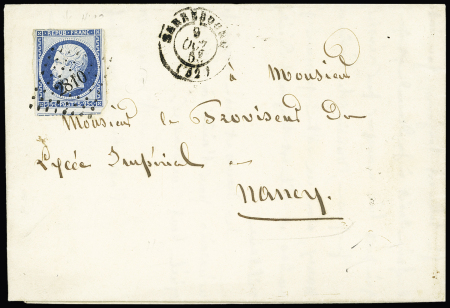 REPUB. FRANC.
2810
SARREBOURG
9
OCT
(52)
à Monsieur
Monsieur le Proviseur Du
Lycée Impérial
Nancy.